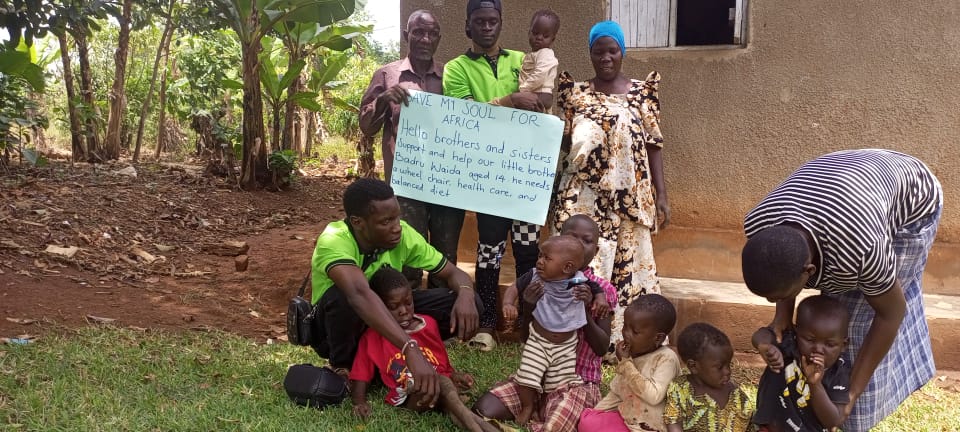 SAVE MY SOUL FOR
AFRICA
Hello brothers and sisters
Support and help our little brothe
Badru Waida aged 14 he needs
a wheel chair, health care, and
balanced diet